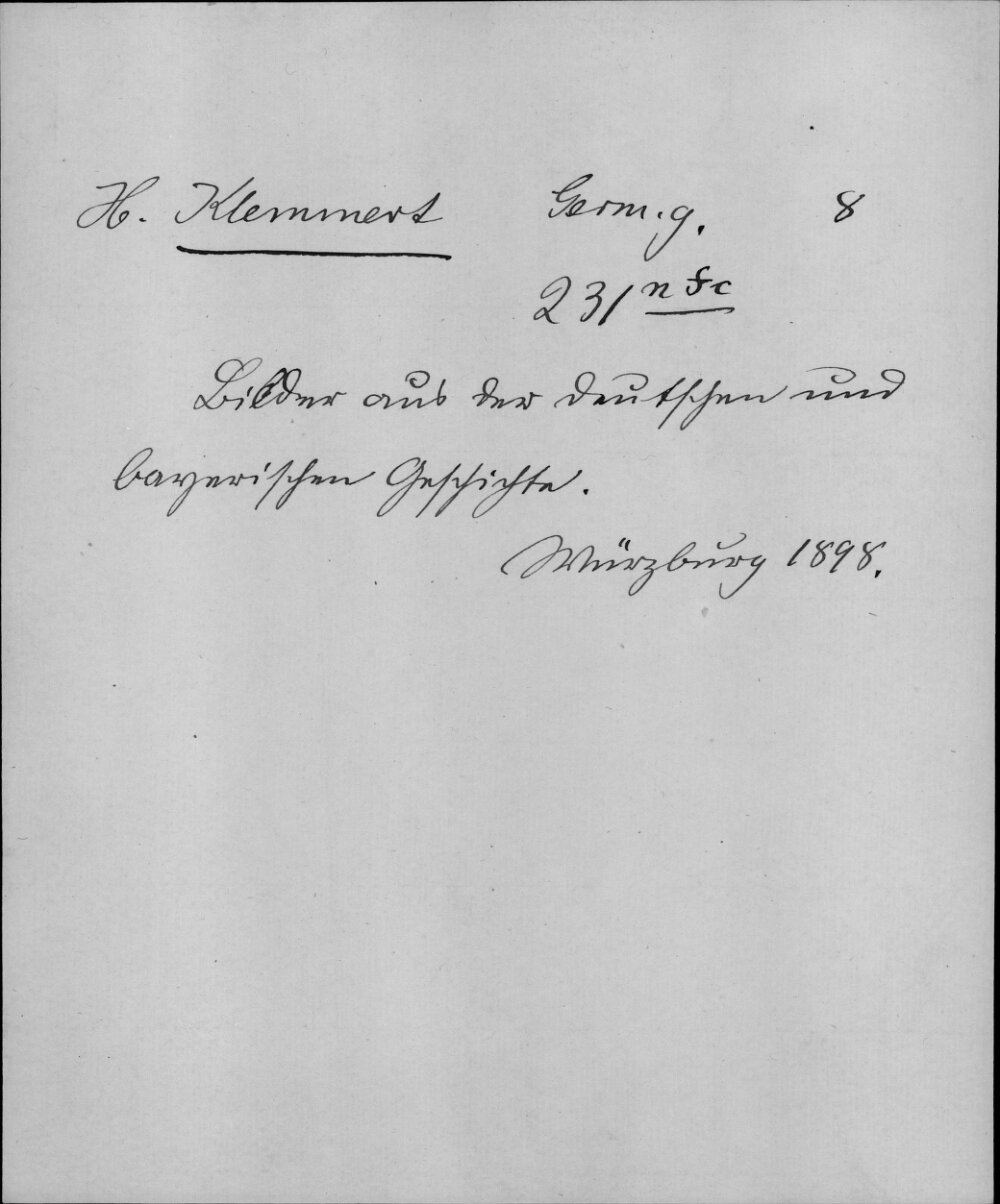 H. Klemmert Germ. g. 8
231 n f c
Bilder aus der deutschen und
bayerischen Geschichte.
Würzburg 1898.